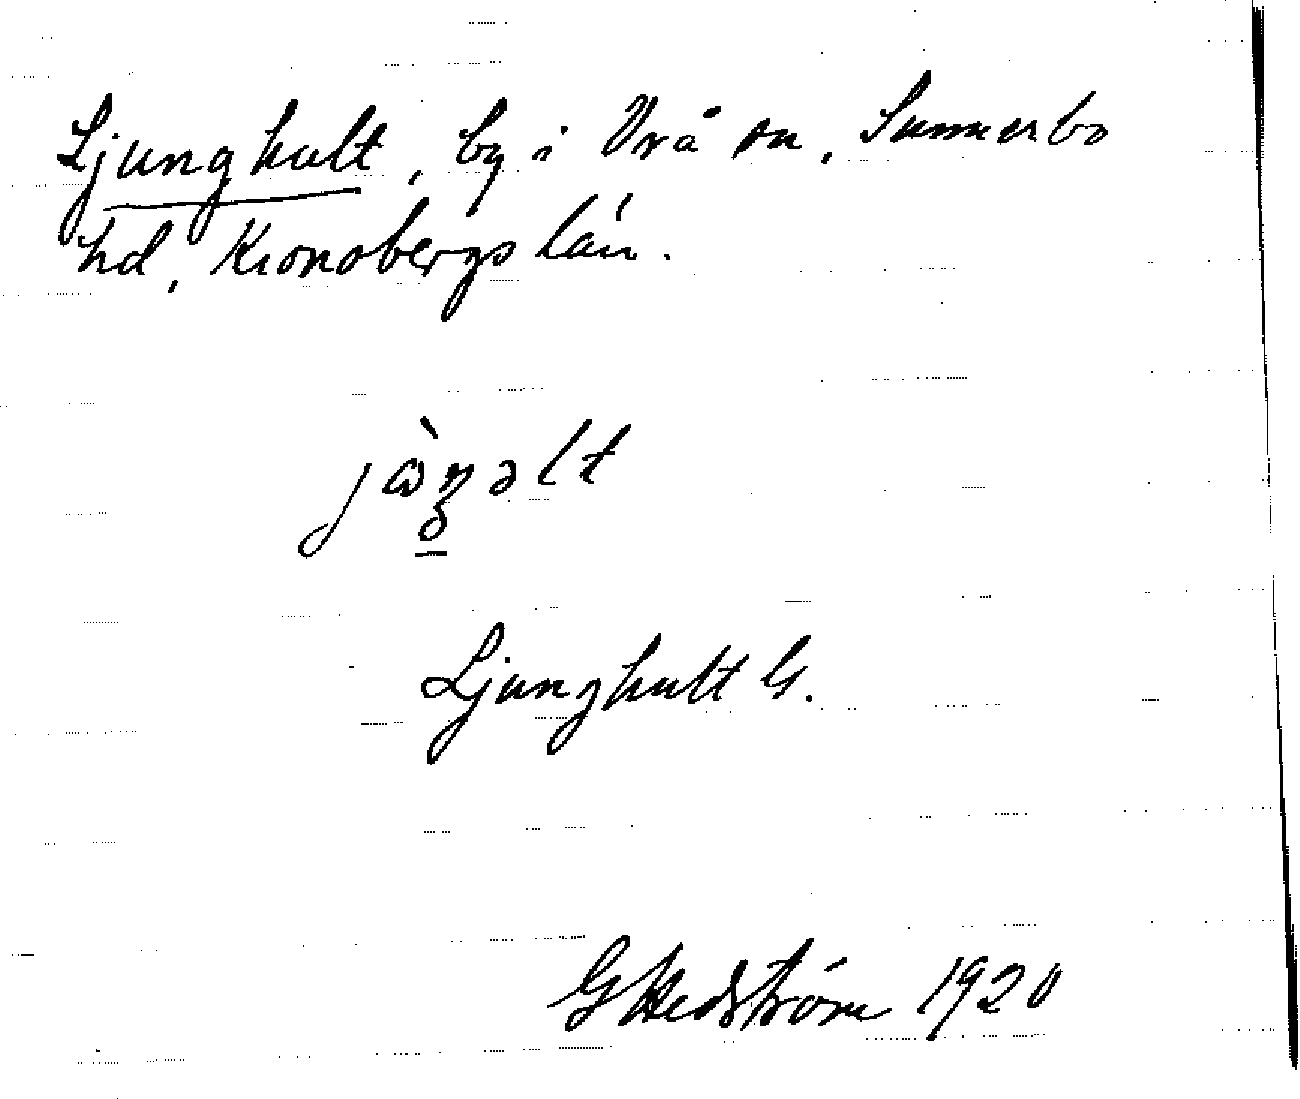 Ljunghult, by i Vrå sn, Sunnerbo
hd, Kronobergs län.
Ljunghult G.
GHedström 1920